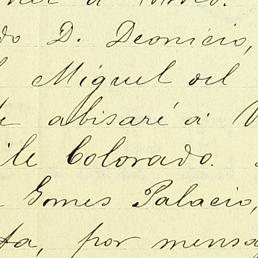 do D. Deonicio,
Miguel del
abisaré á
ile Colorado.
Gomes Palacio,
ta, por mensa